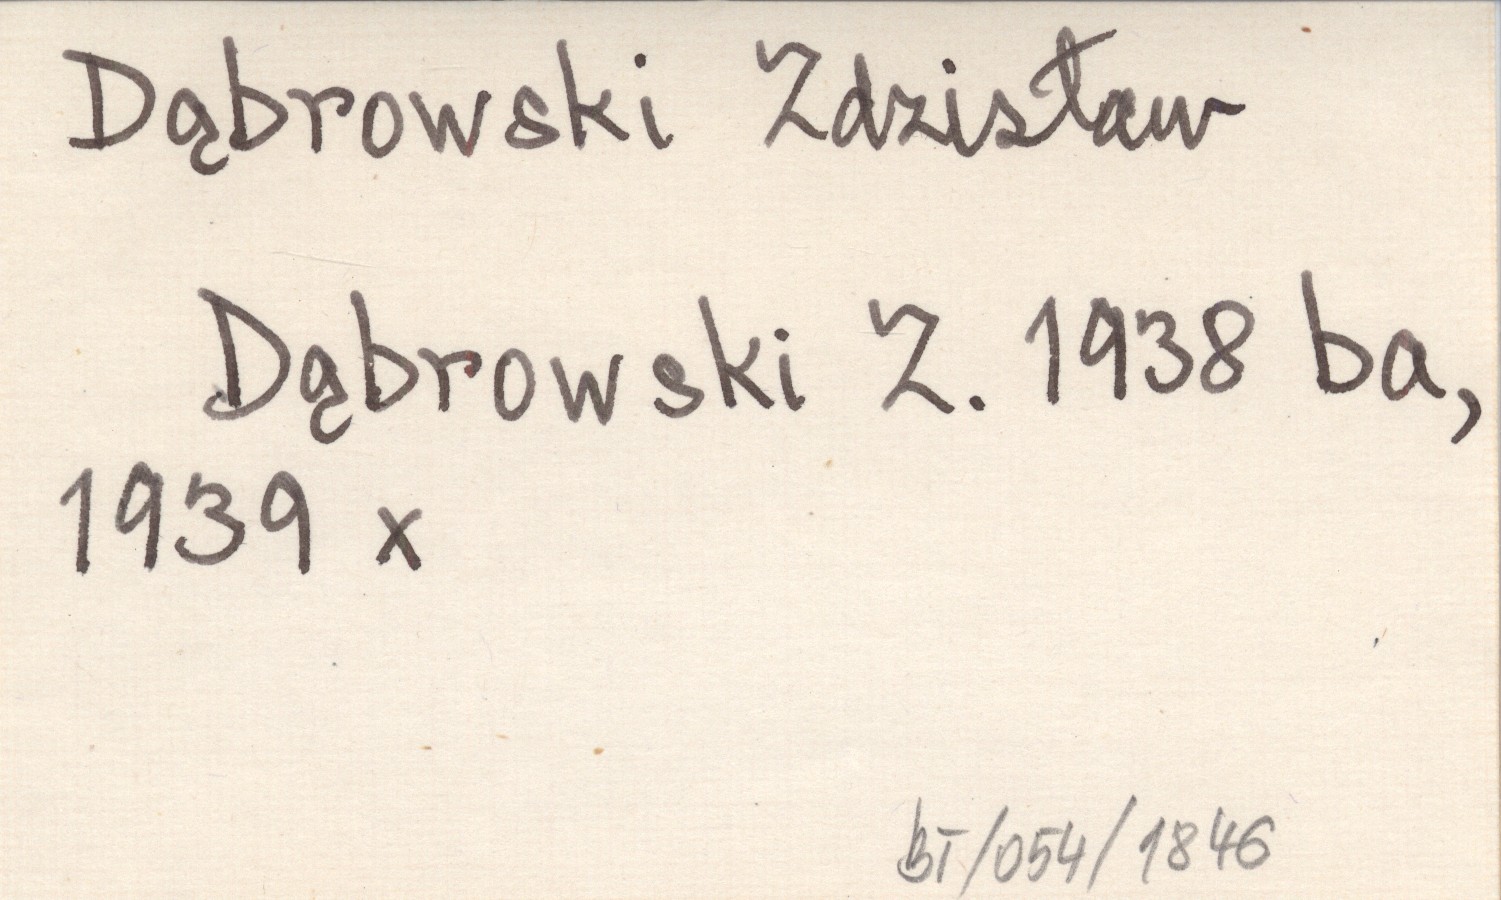 Dąbrowski Zdzisław
Dąbrowski Z. 1938 ba,
1939 x
BT/054/1846